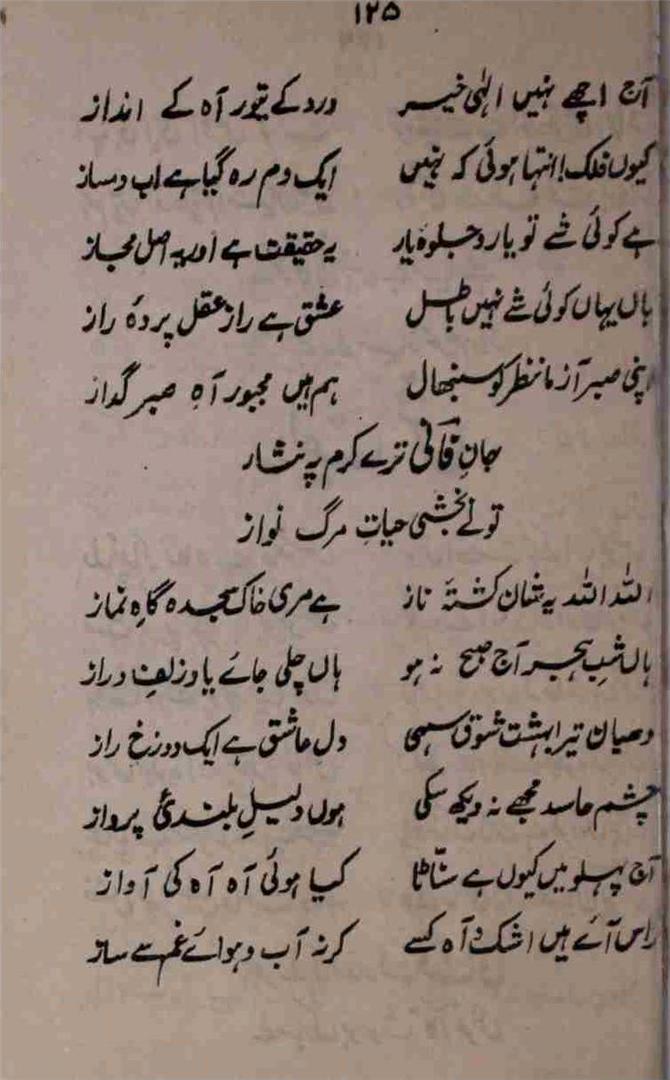 ۱۲۵
آج اچھے نہیں الٰہی خیر درد کے تیور آہ کے انداز
کیوں فلک! انتہا ہوئی کہ نہیں ایک دم رہ گیا ہے اب دمساز
ہے کوئی شے تو یار و جلوہ یار یہ حقیقت ہے اور یہ اصل مجاز
ہاں یہاں کوئی شے نہیں باطل عشق ہے راز عقل پردۂ راز
اپنی صبر آزما نظر کو سنبھال ہم ہیں مجبور آہِ صبر گداز
جانِ فانی ترے کرم پہ نثار
تو نے بخشی حیاتِ مرگ نواز
اللہ اللہ یہ شان کشتۂ ناز ہے مری خاک سجدہ گاہِ نماز
ہاں شبِ ہجر آج صبح نہ ہو ہاں چلی جائے یاد زلفِ دراز
دھیان تیرا بہشت شوق سہی دلِ عاشق ہے ایک دوزخِ راز
چشم حاسد مجھے نہ دیکھ سکی ہوں دلیلِ بلندیٔ پرواز
آج پہلو میں کیوں ہے سنّاٹا کیا ہوئی آہ آہ کی آواز
راس آئے ہیں اشک و آہ کسے کر نہ آب و ہوائے غم سے ساز